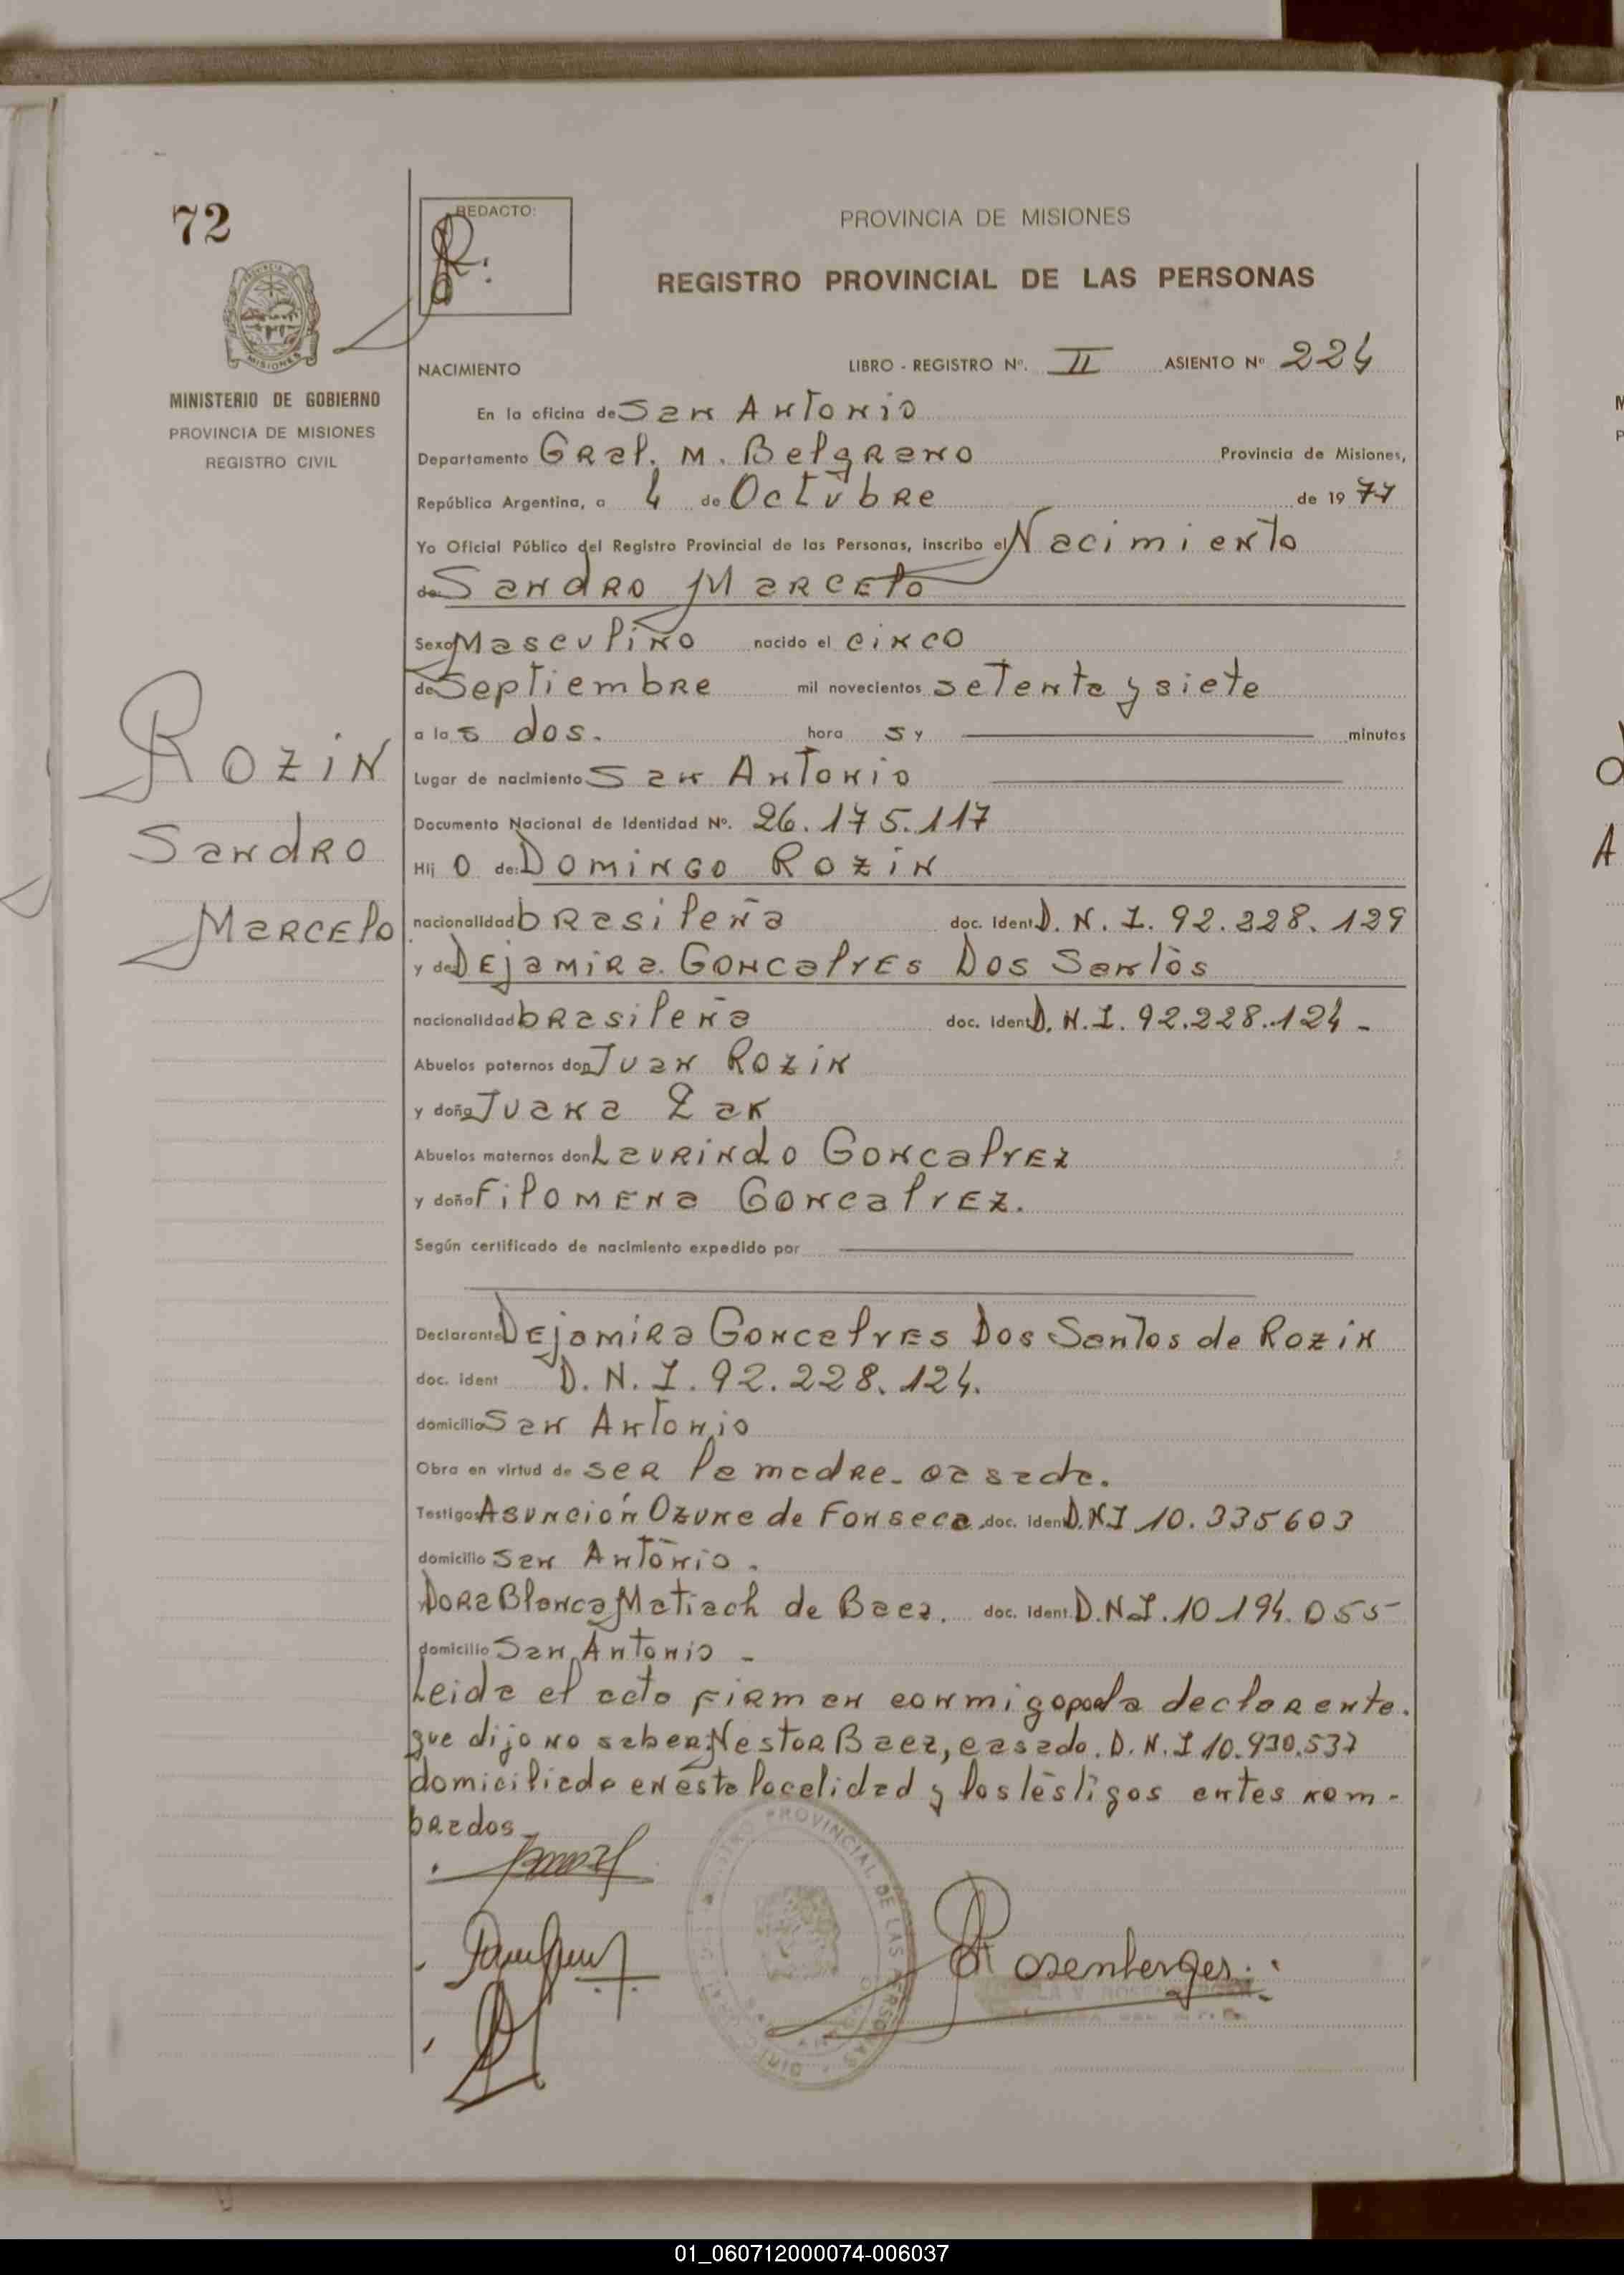 72
REDACTO:
PROVINCIA DE MISIONES
REGISTRO PROVINCIAL DE LAS PERSONAS
MISIONES
MINISTERIO DE GOBIERNO
PROVINCIA DE MISIONES
REGISTRO CIVIL
NACIMIENTO LIBRO - REGISTRO Nº. II ASIENTO Nº 224
En la oficina de San Antonio
Departamento Gral. M. Belgrano Provincia de Misiones,
República Argentina, a 4 de Octubre de 19 77
Yo Oficial Público del Registro Provincial de las Personas, inscribo el Nacimiento
de Sandro Marcelo
Sexo Masculino nacido el cinco
de Septiembre mil novecientos setenta y siete
a las dos. hora s y minutos
Lugar de nacimiento San Antonio
Documento Nacional de Identidad Nº. 26.175.117
Hij o de: Domingo Rozin
nacionalidad brasileña doc. Ident D.N.I. 92.228.129
y de Dejamira Goncalves Dos Santos
nacionalidad brasileña doc. Ident D.N.I. 92.228.124-
Abuelos paternos don Juan Rozin
y doña Juana Zak
Abuelos maternos don Laurindo Goncalvez
y doña Filomena Goncalvez.
Según certificado de nacimiento expedido por
Declarante Dejamira Goncalves Dos Santos de Rozin
doc. ident D.N.I. 92.228.124.
domicilio San Antonio
Obra en virtud de ser la madre.
Testigos Asunción Ozune de Fonseca doc. iden D.N.I 10.335603
domicilio San Antonio.
Dora Blanca Matiach de Baez. doc. Ident. D.N.I. 10.194.055
domicilio San Antonio -
Leida el acto firman conmigo por la declarente.
que dijo no saber Nestor Baez, casado. D.N.I 10.930.537
domiciliado en esta localidad y los testigos antes nom-
brados
Rozin
Sandro
Marcelo
PROVINCIAL DE LAS PERSONAS
Rosenberger
01_060712000074-006037